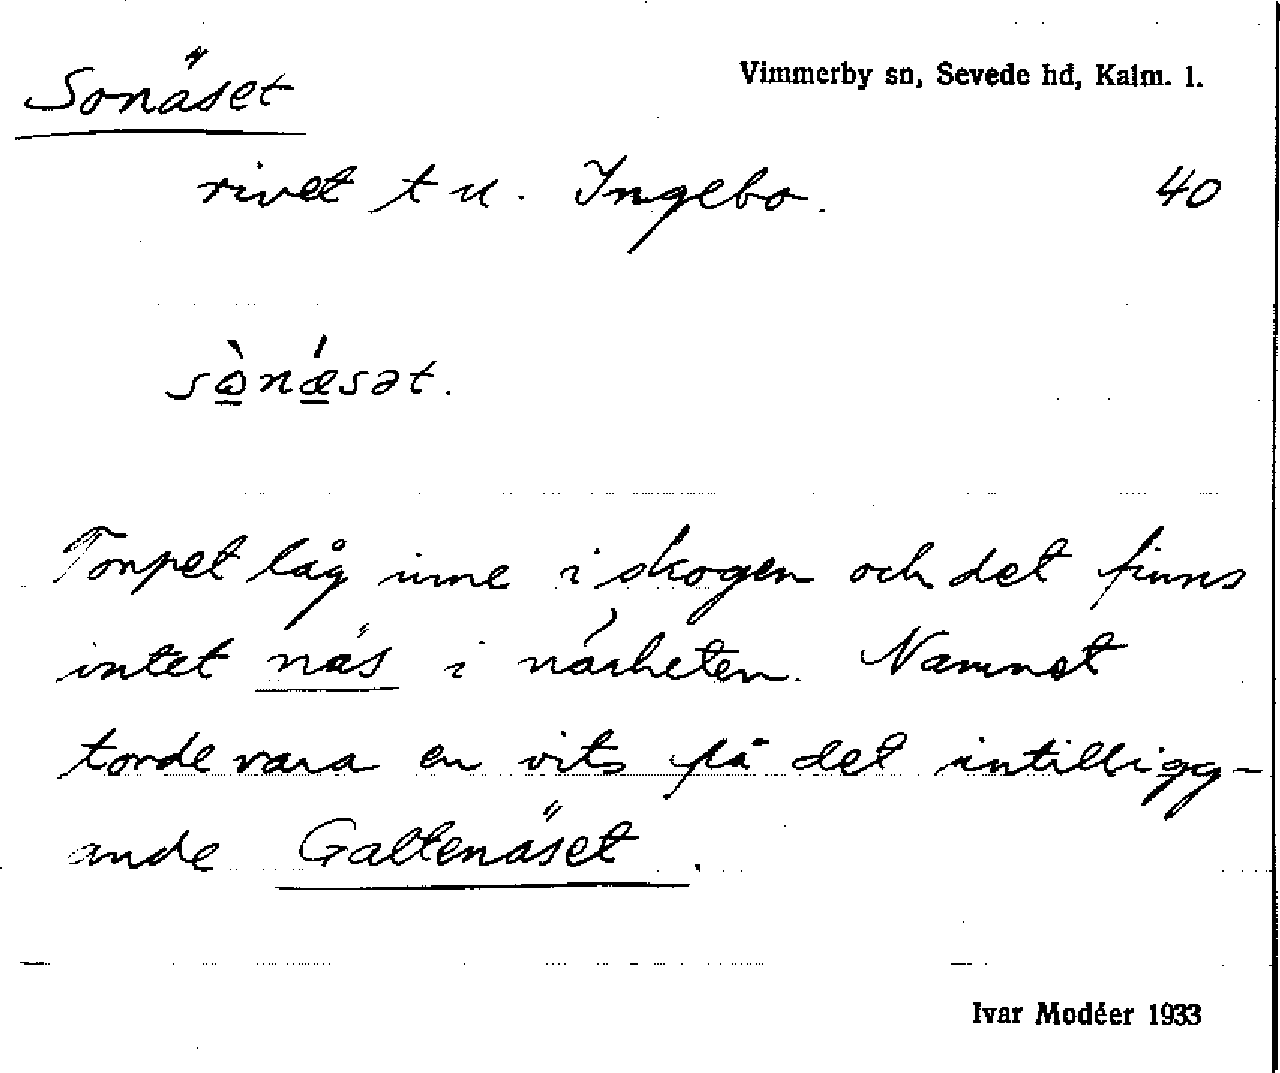 Sonäset
Vimmerby sn, Sevede hd, Kalm. l.
rivet t u. Ingebo. 40
Torpet låg inne i skogen och det finns
intet näs i närheten. Namnet
torde vara en vits på det intilligg-
ande Galtenäset.
Ivar Modéer 1933